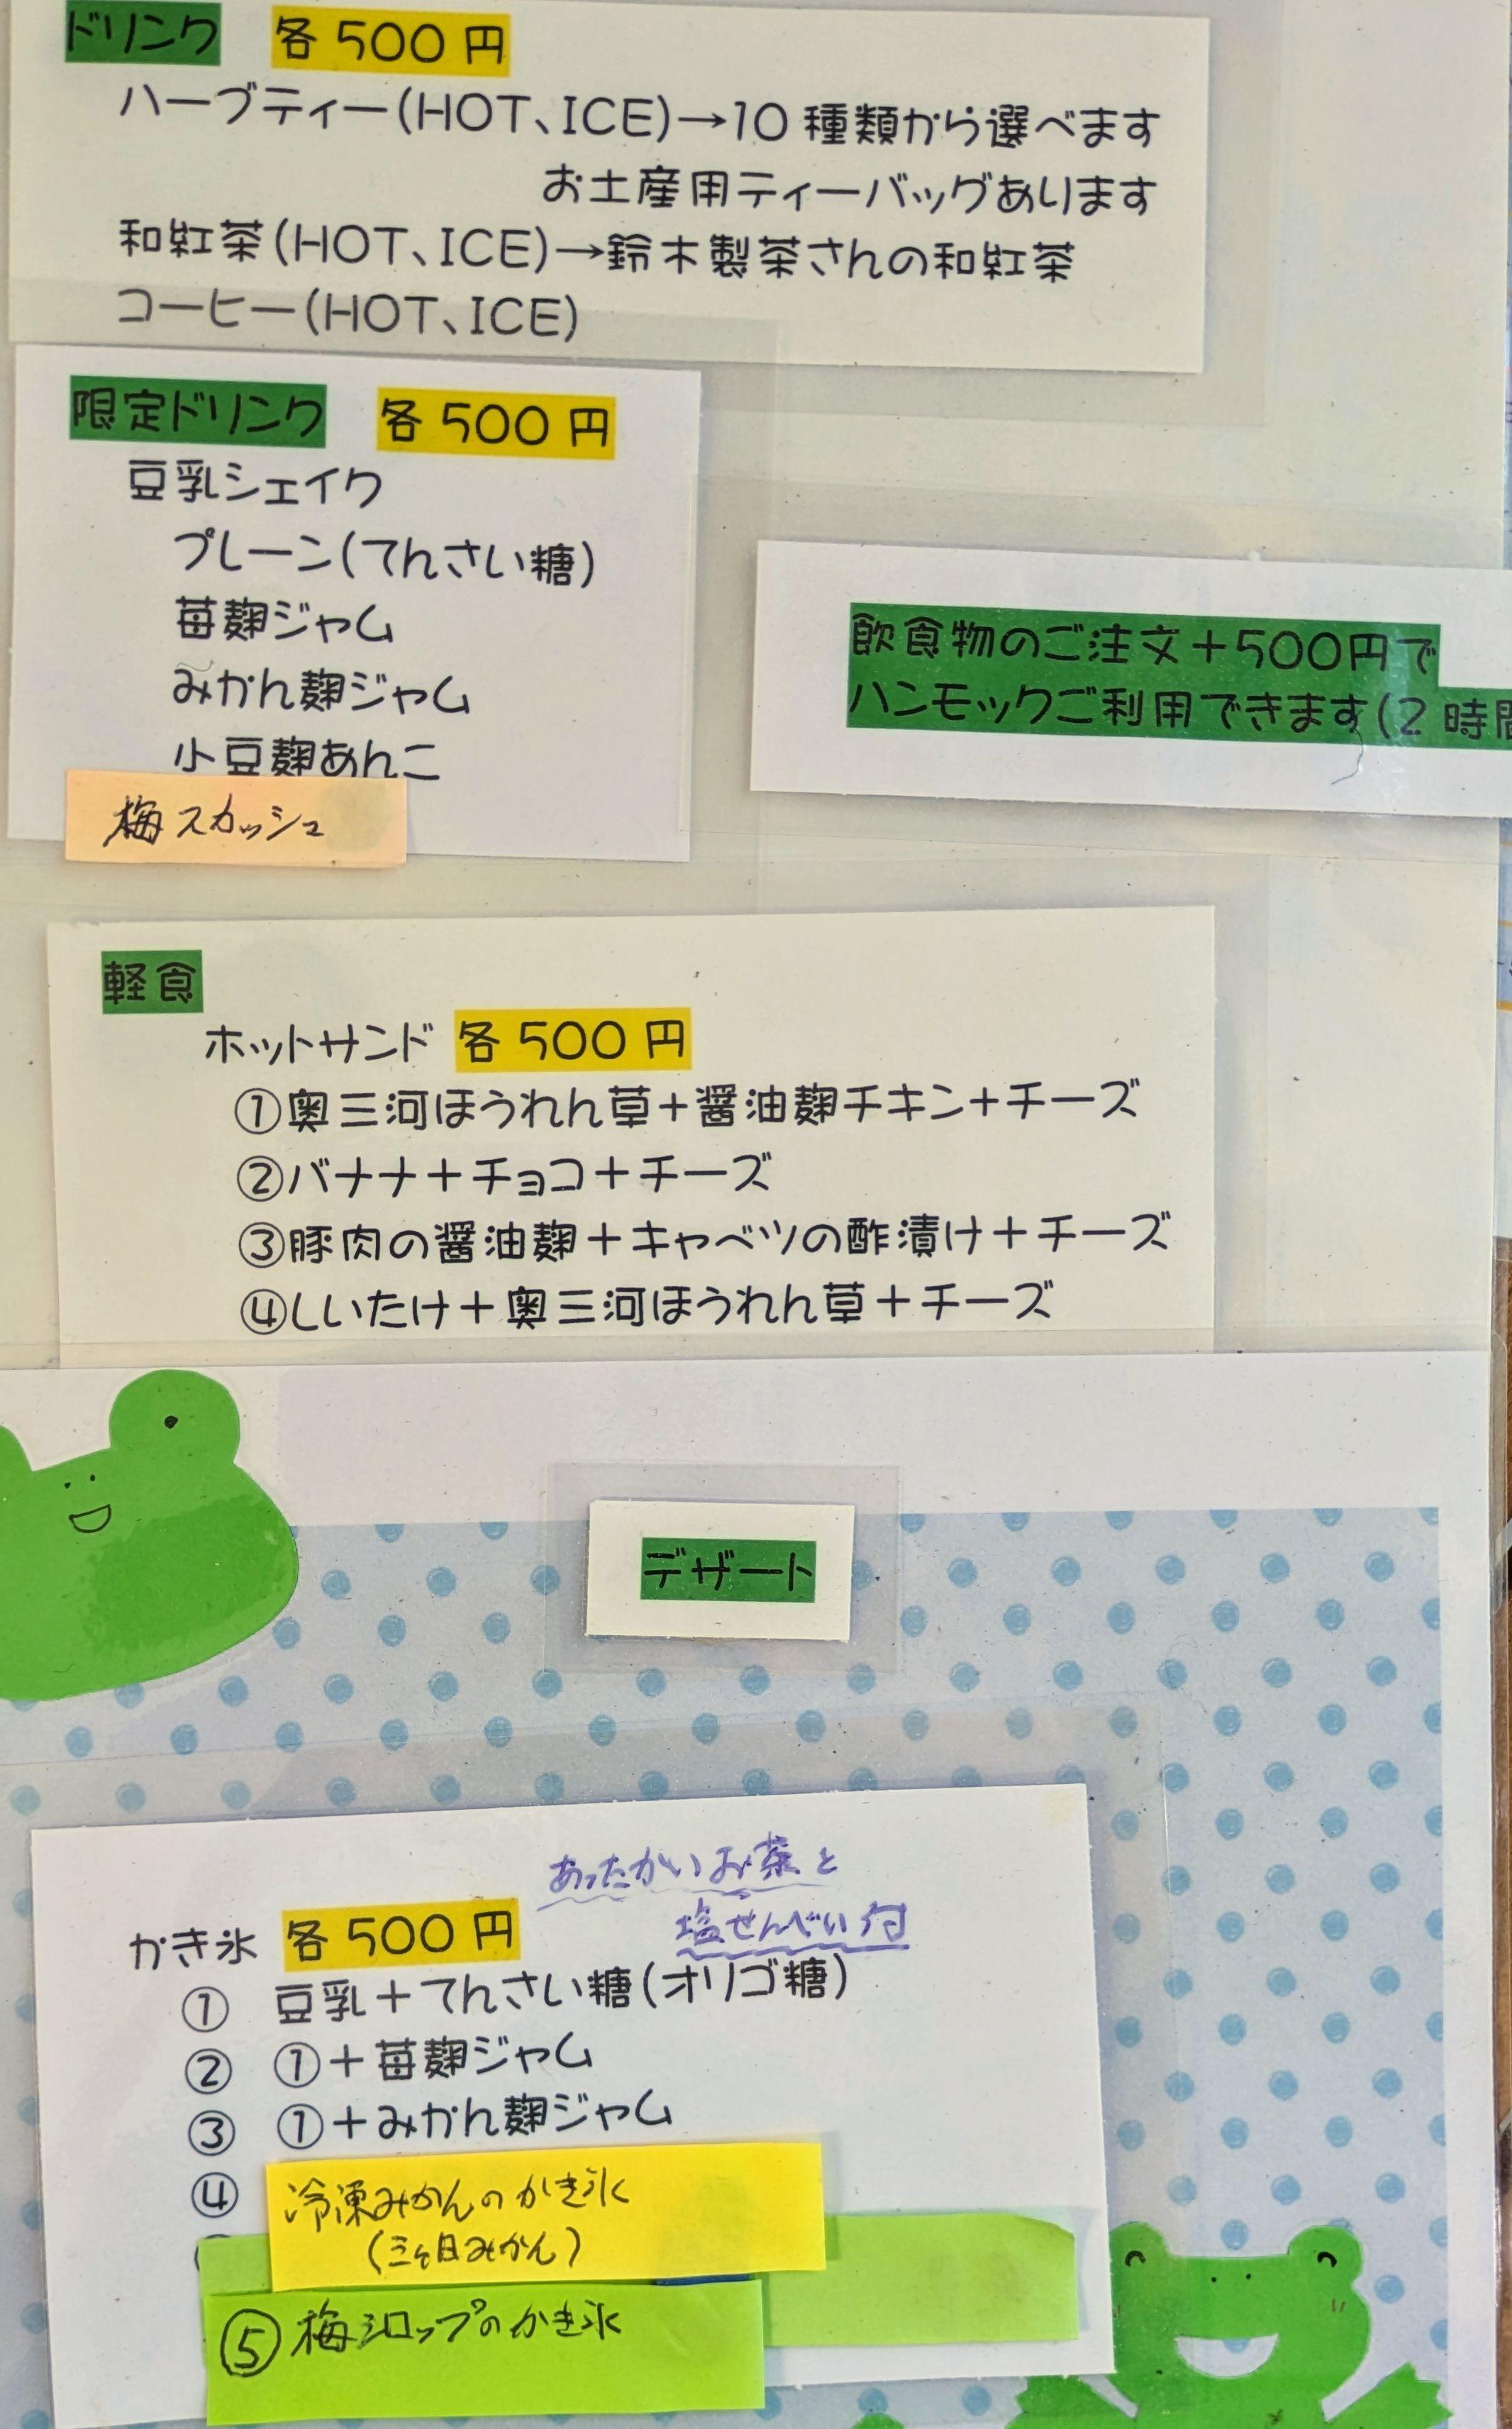 ドリンク 各500円
ハーブティー(HOT、ICE)→10種類から選べます
お土産用ティーバッグあります
和紅茶(HOT、ICE)→鈴木製茶さんの和紅茶
コーヒー(HOT、ICE)
限定ドリンク 各500円
豆乳シェイク
プレーン(てんさい糖)
苺麹ジャム
みかん麹ジャム
小豆麹あんこ
梅スカッシュ
飲食物のご注文+500円で
ハンモックご利用できます(2時間
軽食
ホットサンド 各500円
①奥三河ほうれん草+醤油麹チキン+チーズ
②バナナ+チョコ+チーズ
③豚肉の醤油麹+キャベツの酢漬け+チーズ
④しいたけ+奥三河ほうれん草+チーズ
デザート
あったかいお茶と
塩せんべい付
かき氷 各500円
① 豆乳+てんさい糖(オリゴ糖)
② ①+苺麹ジャム
③ ①+みかん麹ジャム
④ 冷凍みかんのかき氷
(三ヶ日みかん)
⑤ 梅シロップのかき氷